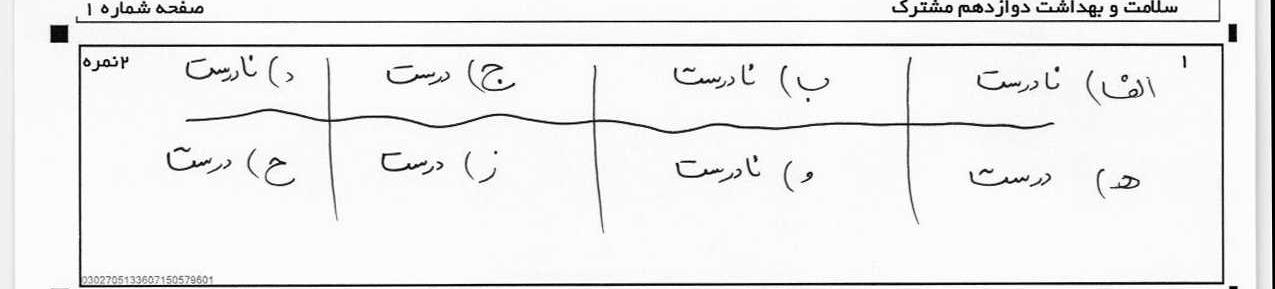 سلامت و بهداشت دوازدهم مشترک صفحه شماره ۱
۱ ۲نمره
الف) نادرست ب) نادرست ج) درست د) نادرست
ه) درست و) نادرست ز) درست ح) درست
0302705133607150579601